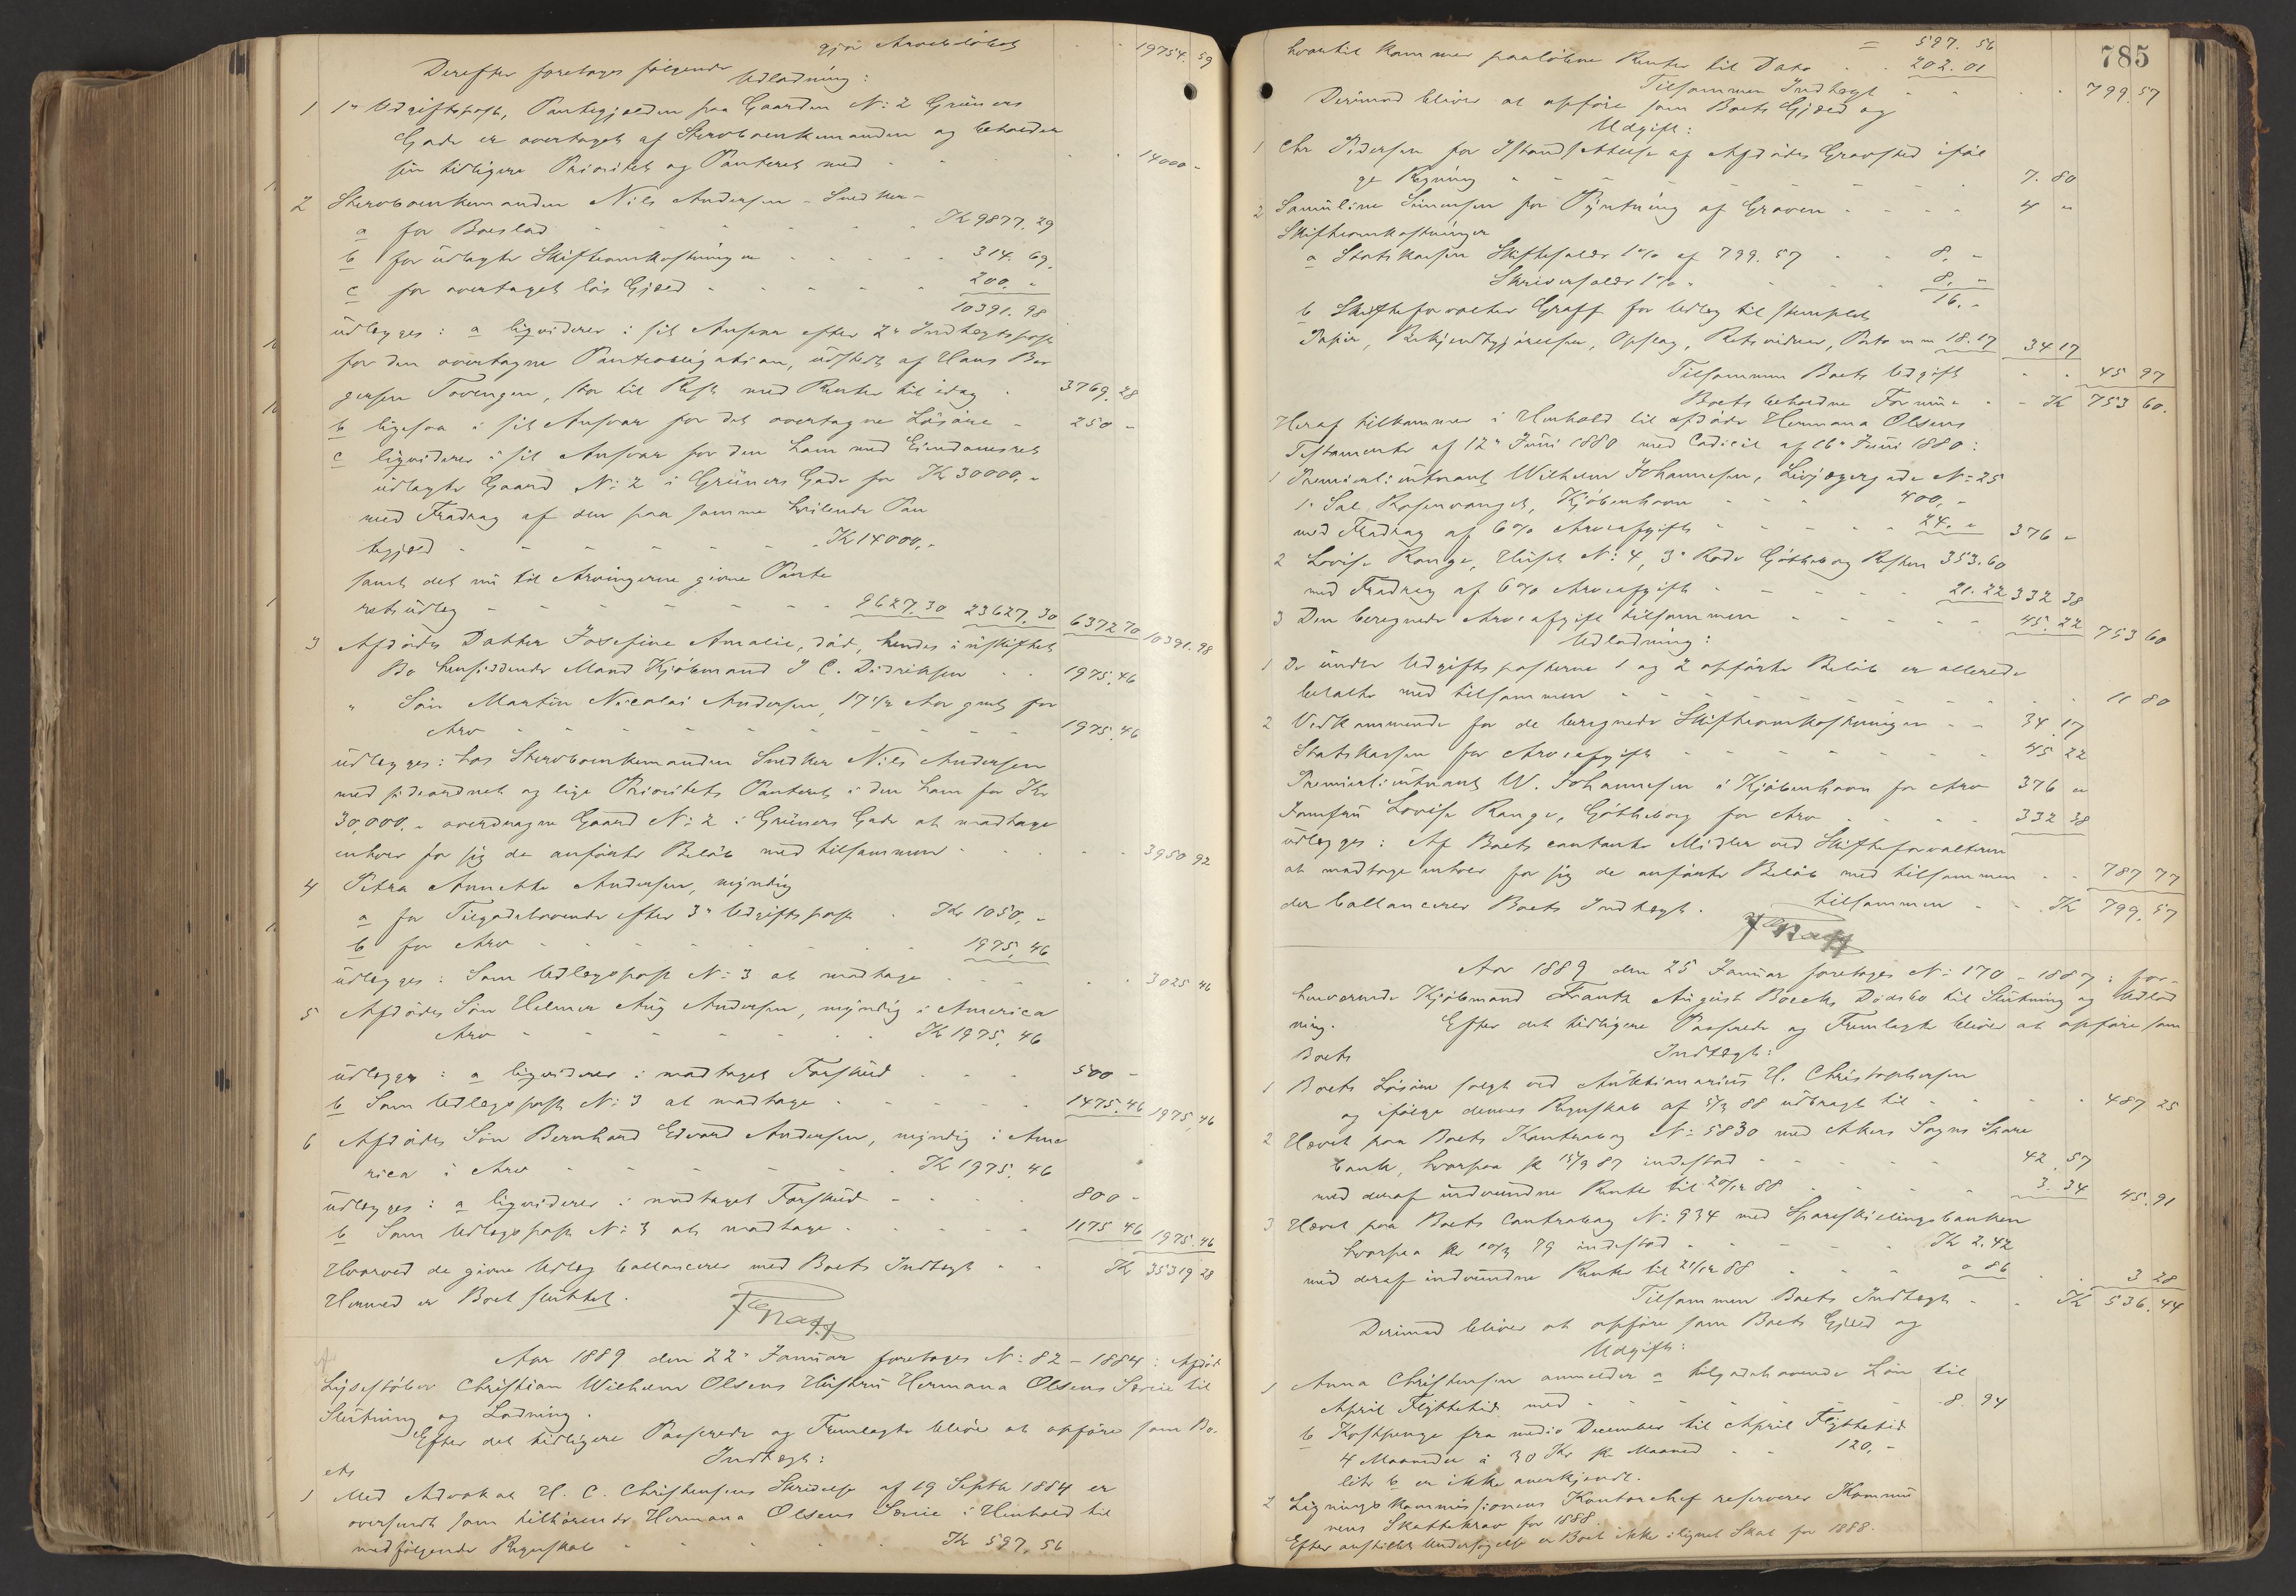 gjør Arvebeløbet - - 19754. 59
Derefter foretages følgende
Udlodning:
1 1ste Udgiftspost, Pantegjælden paa Gaarden No: 2 Grüners
Gade er overtaget af Sterboenkemanden og beholder
sin tidligere Prioritet og Panteret med - - - 14000 -
2 Sterboenkemanden Nils Andersen - Snedker -
a for Boeslod - - - - Kr 9877. 29
b for udlagte Skifteomkostninger - - - 314. 69.
c for overtaget løs Gjæld - - - - 200. -
10391. 98
udlægges: a liqviderer i sit Ansvar efter 2den Indtægtspost
for den overtagne Panteobligation, udstedt af Hans Bor
gersen Tovengen, stor til Rest med Renter til idag - 3769. 28
b ligesaa i sit Ansvar for det overtagne Løsøre - 250 -
c liqviderer i sit Ansvar for den ham med Eiendomsret
udlagte Gaard No: 2 i Grüners Gade for Kr 30000. -
med Fradrag af den paa samme hvilende Pan
tegjæld - - - - - Kr 14000. -
samt det nu til Arvingerne givne Pante
retsudlæg - - - - - 9627.30 23627.30 6372 70 10391. 98
3 Afdødes Datter Josefine Amalie, død, hendes i uskiftet
Bo hensiddende Mand Kjøbmand J C. Didriksen - - 1975. 46
" Søn Martin Nicolai Andersen, 17 1/2 Aar gml for
Arv - - - - - - - - 1975. 46
udlægges: hos Sterboenkemanden Snedker Nils Andersen
med sideordnet og lige Prioritets Panteret i den ham for Kr
30,000. - overdragne Gaard No: 2 i Grüners Gade at modtage
enhver for sig de anførte Beløb med tilsammen - - - - 3950 92
4 Petra Annette Andersen, myndig
a for Tilgodehavende efter 3die Udgiftspost - Kr 1050. -
b for Arv - - - - - 1975. 46
udlægges: Som Udlægspost No: 3 at modtage - - - - 3025 46
5 Afdødes Søn Helmer Aug Andersen, myndig i America
Arv - - - - - - Kr 1975. 46
udlægges: a liqviderer i modtaget Forskud - - - 500 -
b Som Udlægspost No: 3 at modtage - - - - 1475. 46 1975. 46
6 Afdødes Søn Bernhard Edvard Andersen, myndig i Ame
rica i Arv - - - - - Kr 1975. 46
udlægges: a liqviderer i modtaget Forskud - - - 800 -
b Som Udlægspost No: 3 at modtage - - - - 1175 46 1975. 46
Hvorved de givne Udlæg ballancerer med Boets Indtægt - - Kr 35319 28
Hermed er Boet sluttet.
Graff
Aar 1889 den 22de Januar foretages No: 82 - 1884: Afdøde
Lysestøber Christian Wilhelm Olsens Hustru Hermana Olsens Særeie til
Slutning og Lodning.
Efter det tidligere Passerede og Fremlagte bliver at opføre som Bo-
ets Indtægt:
1 Med Advokat H. C. Christensens Skrivelse af 19 Septbr 1884 er
oversendt som tilhørende Hermana Olsens Særeie i Henhold til
medfølgende Regnskab - - - - Kr 597. 56
785
= 597. 56
hvortil kommer paaløbne Renter til Dato - - 202. 01
Tilsammen Indtægt - - - 799. 57
Derimod bliver at opføre som Boets Gjæld og
Udgift:
1 Chr Pedersen for Istandsættelse af Afdødes Gravsted iføl
ge Regning - - - - - - 7. 80
2 Samuline Simensen for Pyntning af Graven - - - - 4 -
Skifteomkostninger
a Statskassen Skiftesalær 1% af 799. 57 - - 8. -
Skriversalær 1% - - - 8. -
16. -
b Skifteforvalter Graff for Udlæg til stemplet
Papir, Bekjendtgjørelser, Opslag, Retsvidner, Porto m m 18.17 34 17
Tilsammen Boets Udgift - - 45 97
Boets beholdne Formue - - Kr 753 60.
Heraf tilkommer i Henhold til afdøde Hermana Olsens
Testamente af 12te Juni 1880 med Codicil af 16de Juni 1880:
1 Premierlieutnant Wilhelm Johannesen, Livjægergade No: 25
1ste Sal Rosenvænget, Kjøbenhavn - - - 400. -
med Fradrag af 6% Arveafgift - - - - 24. - 376 -
2 Lovise Range, Huset No: 4, 3die Rode Gøtheborg Resten 353.60
med Fradrag af 6% Arveafgift - - - - 21.22 332 38
3 Den beregnede Arveafgift tilsammen - - - - 45. 22 753 60
Udlodning:
1 De under Udgiftsposterne 1 og 2 opførte Beløb er allerede
betalte med tilsammen - - - - - - - 11 80
2 Vedkommende for de beregnede Skifteomkostninger - - 34. 17
Statskassen for Arveafgift - - - - - - 45 22
Premierlieutnant W. Johannesen i Kjøbenhavn for Arv 376 -
Jomfru Lovise Range, Gøtheborg for Arv - - - - 332 38
udlægges: Af Boets contante Midler ved Skifteforvalteren
at modtage enhver for sig de anførte Beløb med tilsammen - - 787 77
der ballancerer Boets Indtægt. tilsammen - - Kr 799. 57
Graff
Aar 1889 den 25 Januar foretages No: 170 - 1887: for-
henværende Kjøbmand Frantz August Boecks Dødsbo til Slutning og Udlod
ning. Efter det tidligere Passerede og Fremlagte bliver at opføre som
Boets Indtægt:
1 Boets Løsøre solgt ved Auktionarius H. Christophersen
og ifølge dennes Regnskab af 5/3 88 udbragt til - - - - 487 25
2 Hævet paa Boets Kontrabog No: 5830 med Akers Sogns Spare
bank, hvorpaa pr 15/9 87 indestod - - - - - 42. 57
med deraf indvundne Renter til 20/12 88 - - - - 3. 34 45. 91
3 Hævet paa Boets Contrabog No: 934 med Spareskillingsbanken
hvorpaa pr 10/3 79 indestod - - - - Kr 2. 42
med deraf indvundne Renter til 21/12 88 - - - - 0 86 - - 3 28
Tilsammen Boets Indtægt - - Kr 536. 44
Derimod bliver at opføre som Boets Gjæld og
Udgift:
1 Anna Christensen anmelder a tilgodehavende Løn til
April Flyttetid med - - - - - - 8. 94
b Kostpenge fra medio December til April Flyttetid
4 Maaneder à 30 Kr pr Maaned - - 120. -
litr b er ikke anerkjendt.
2 Ligningskommissionens Kontorchef reserverer Kommu
nens Skattekrav for 1888.
Efter anstillet Undersøgelse er Boet ikke ilignet Skat for 1888.